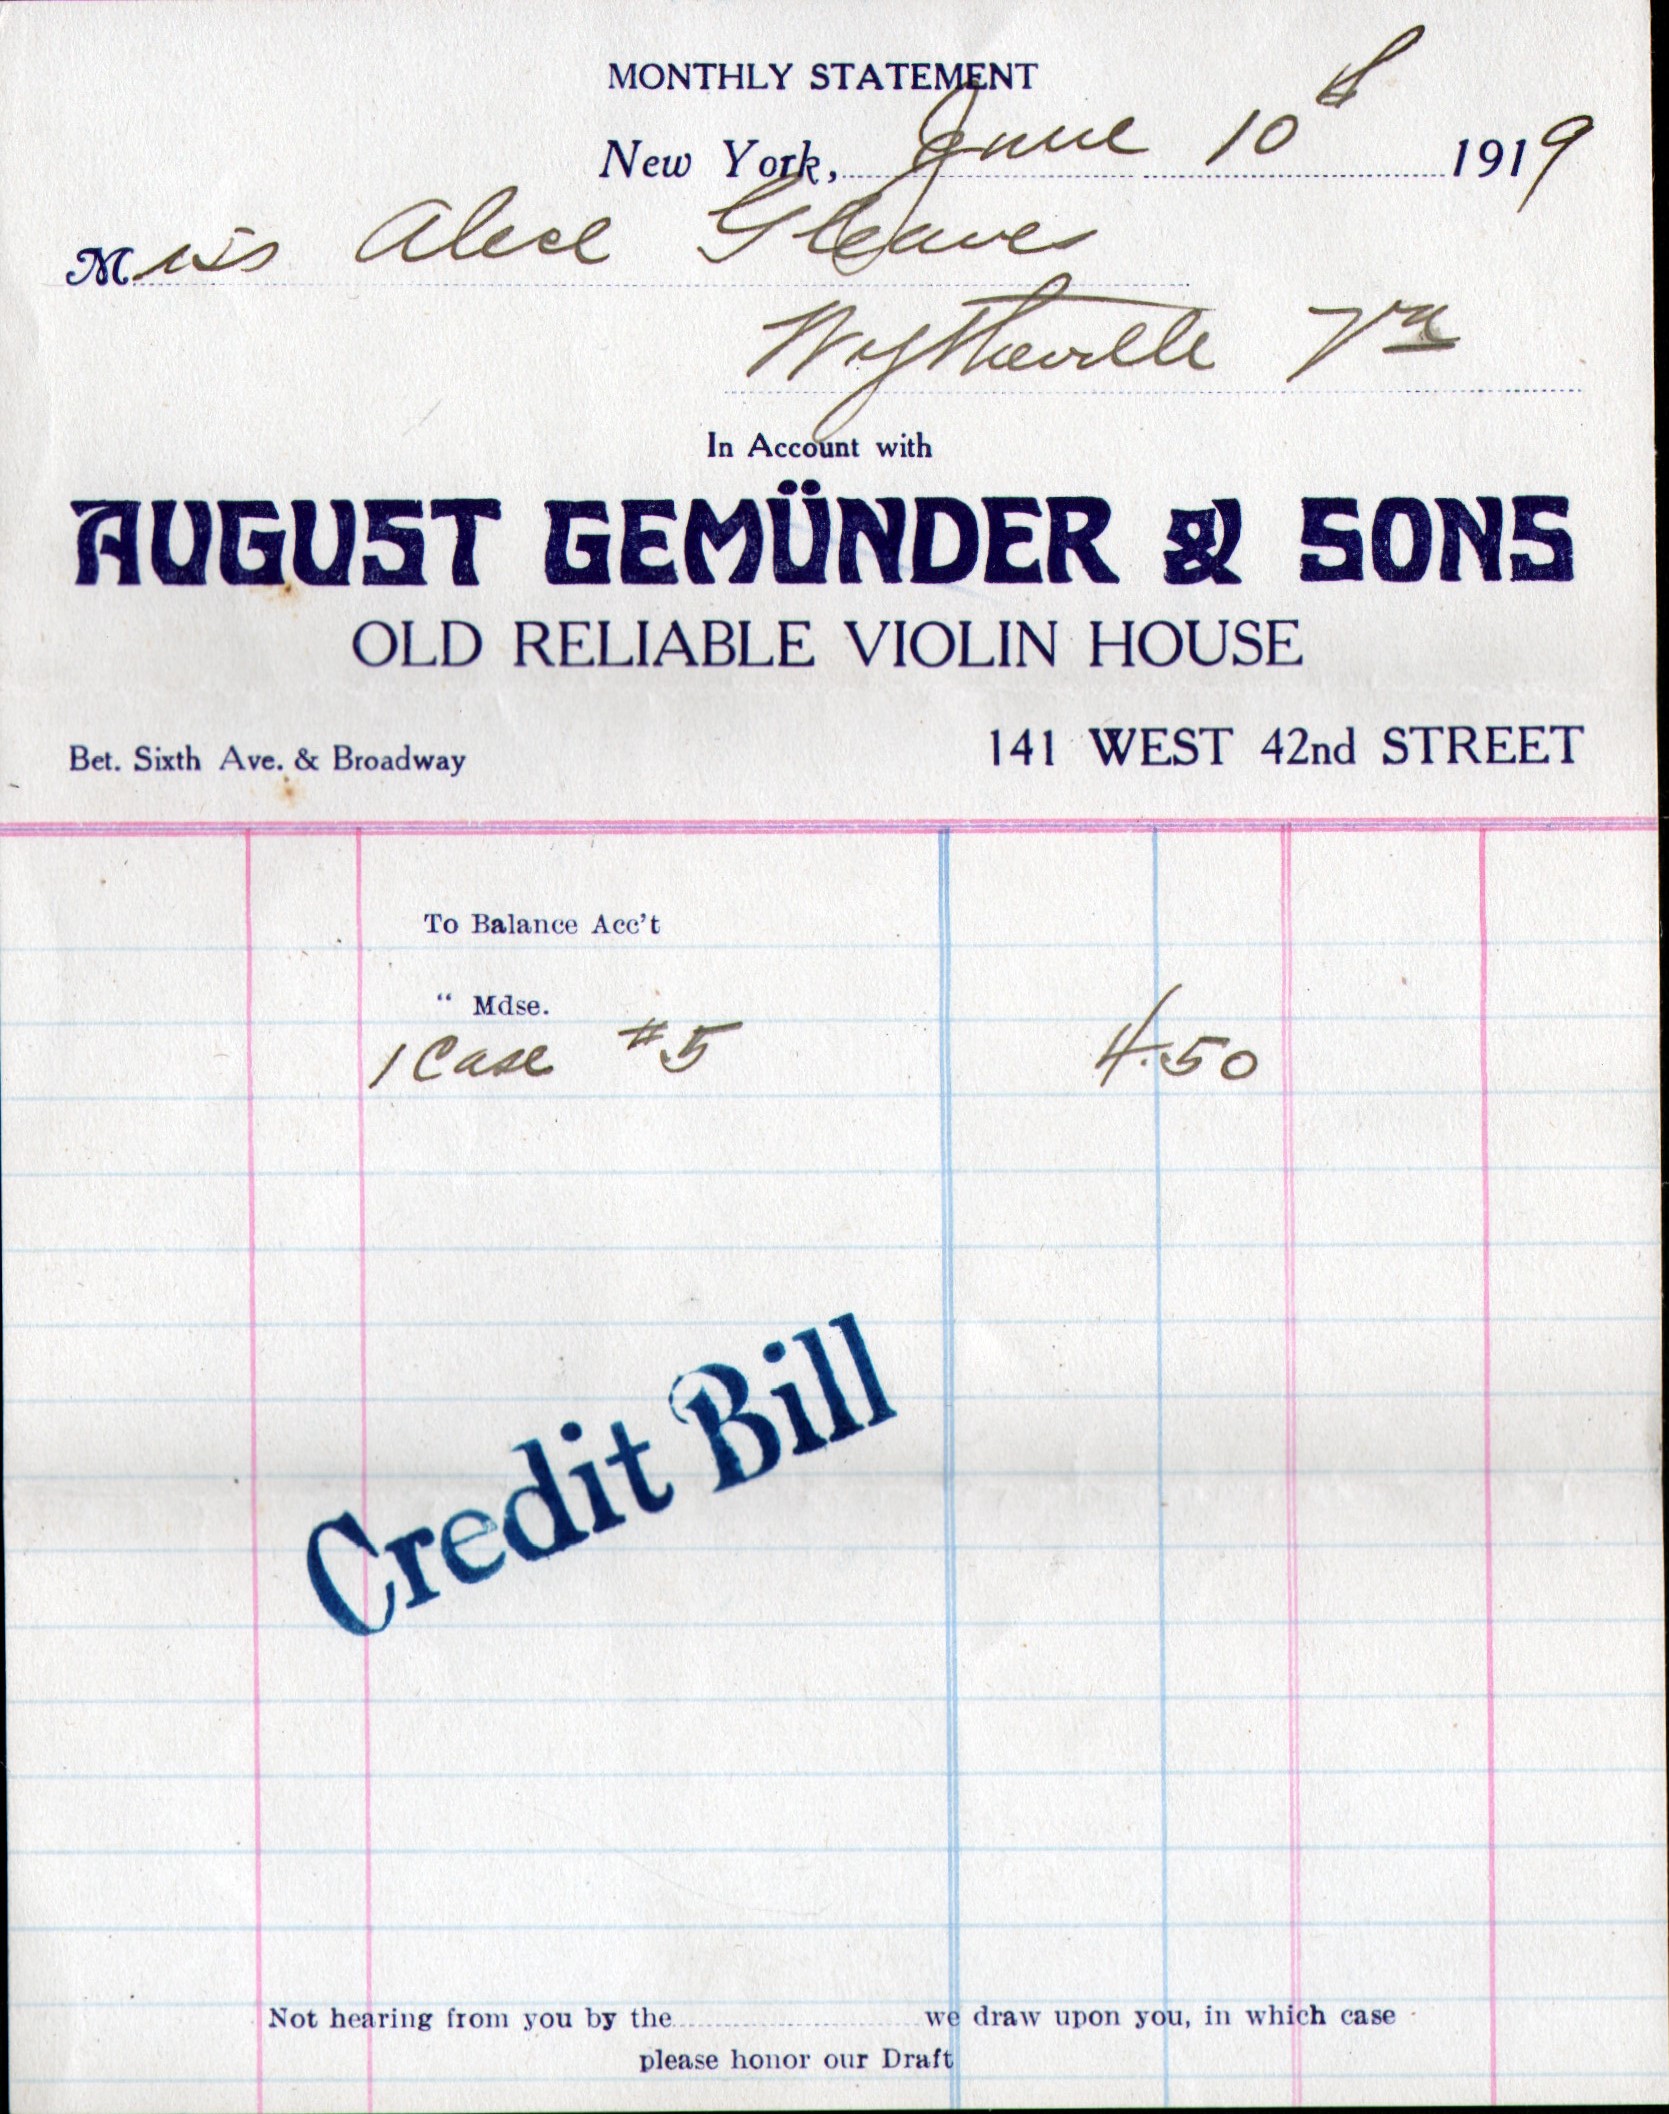 MONTHLY STATEMENT
New York, June 10th 1919
Miss Alice Gleaves
Wytheville Va
In Account with
AUGUST GEMÜNDER & SONS
OLD RELIABLE VIOLIN HOUSE
Bet. Sixth Ave. & Broadway 141 WEST 42nd STREET
To Balance Acc't
“ Mdse.
1 Case #5 4.50
Credit Bill
Not hearing from you by the we draw upon you, in which case
please honor our Draft